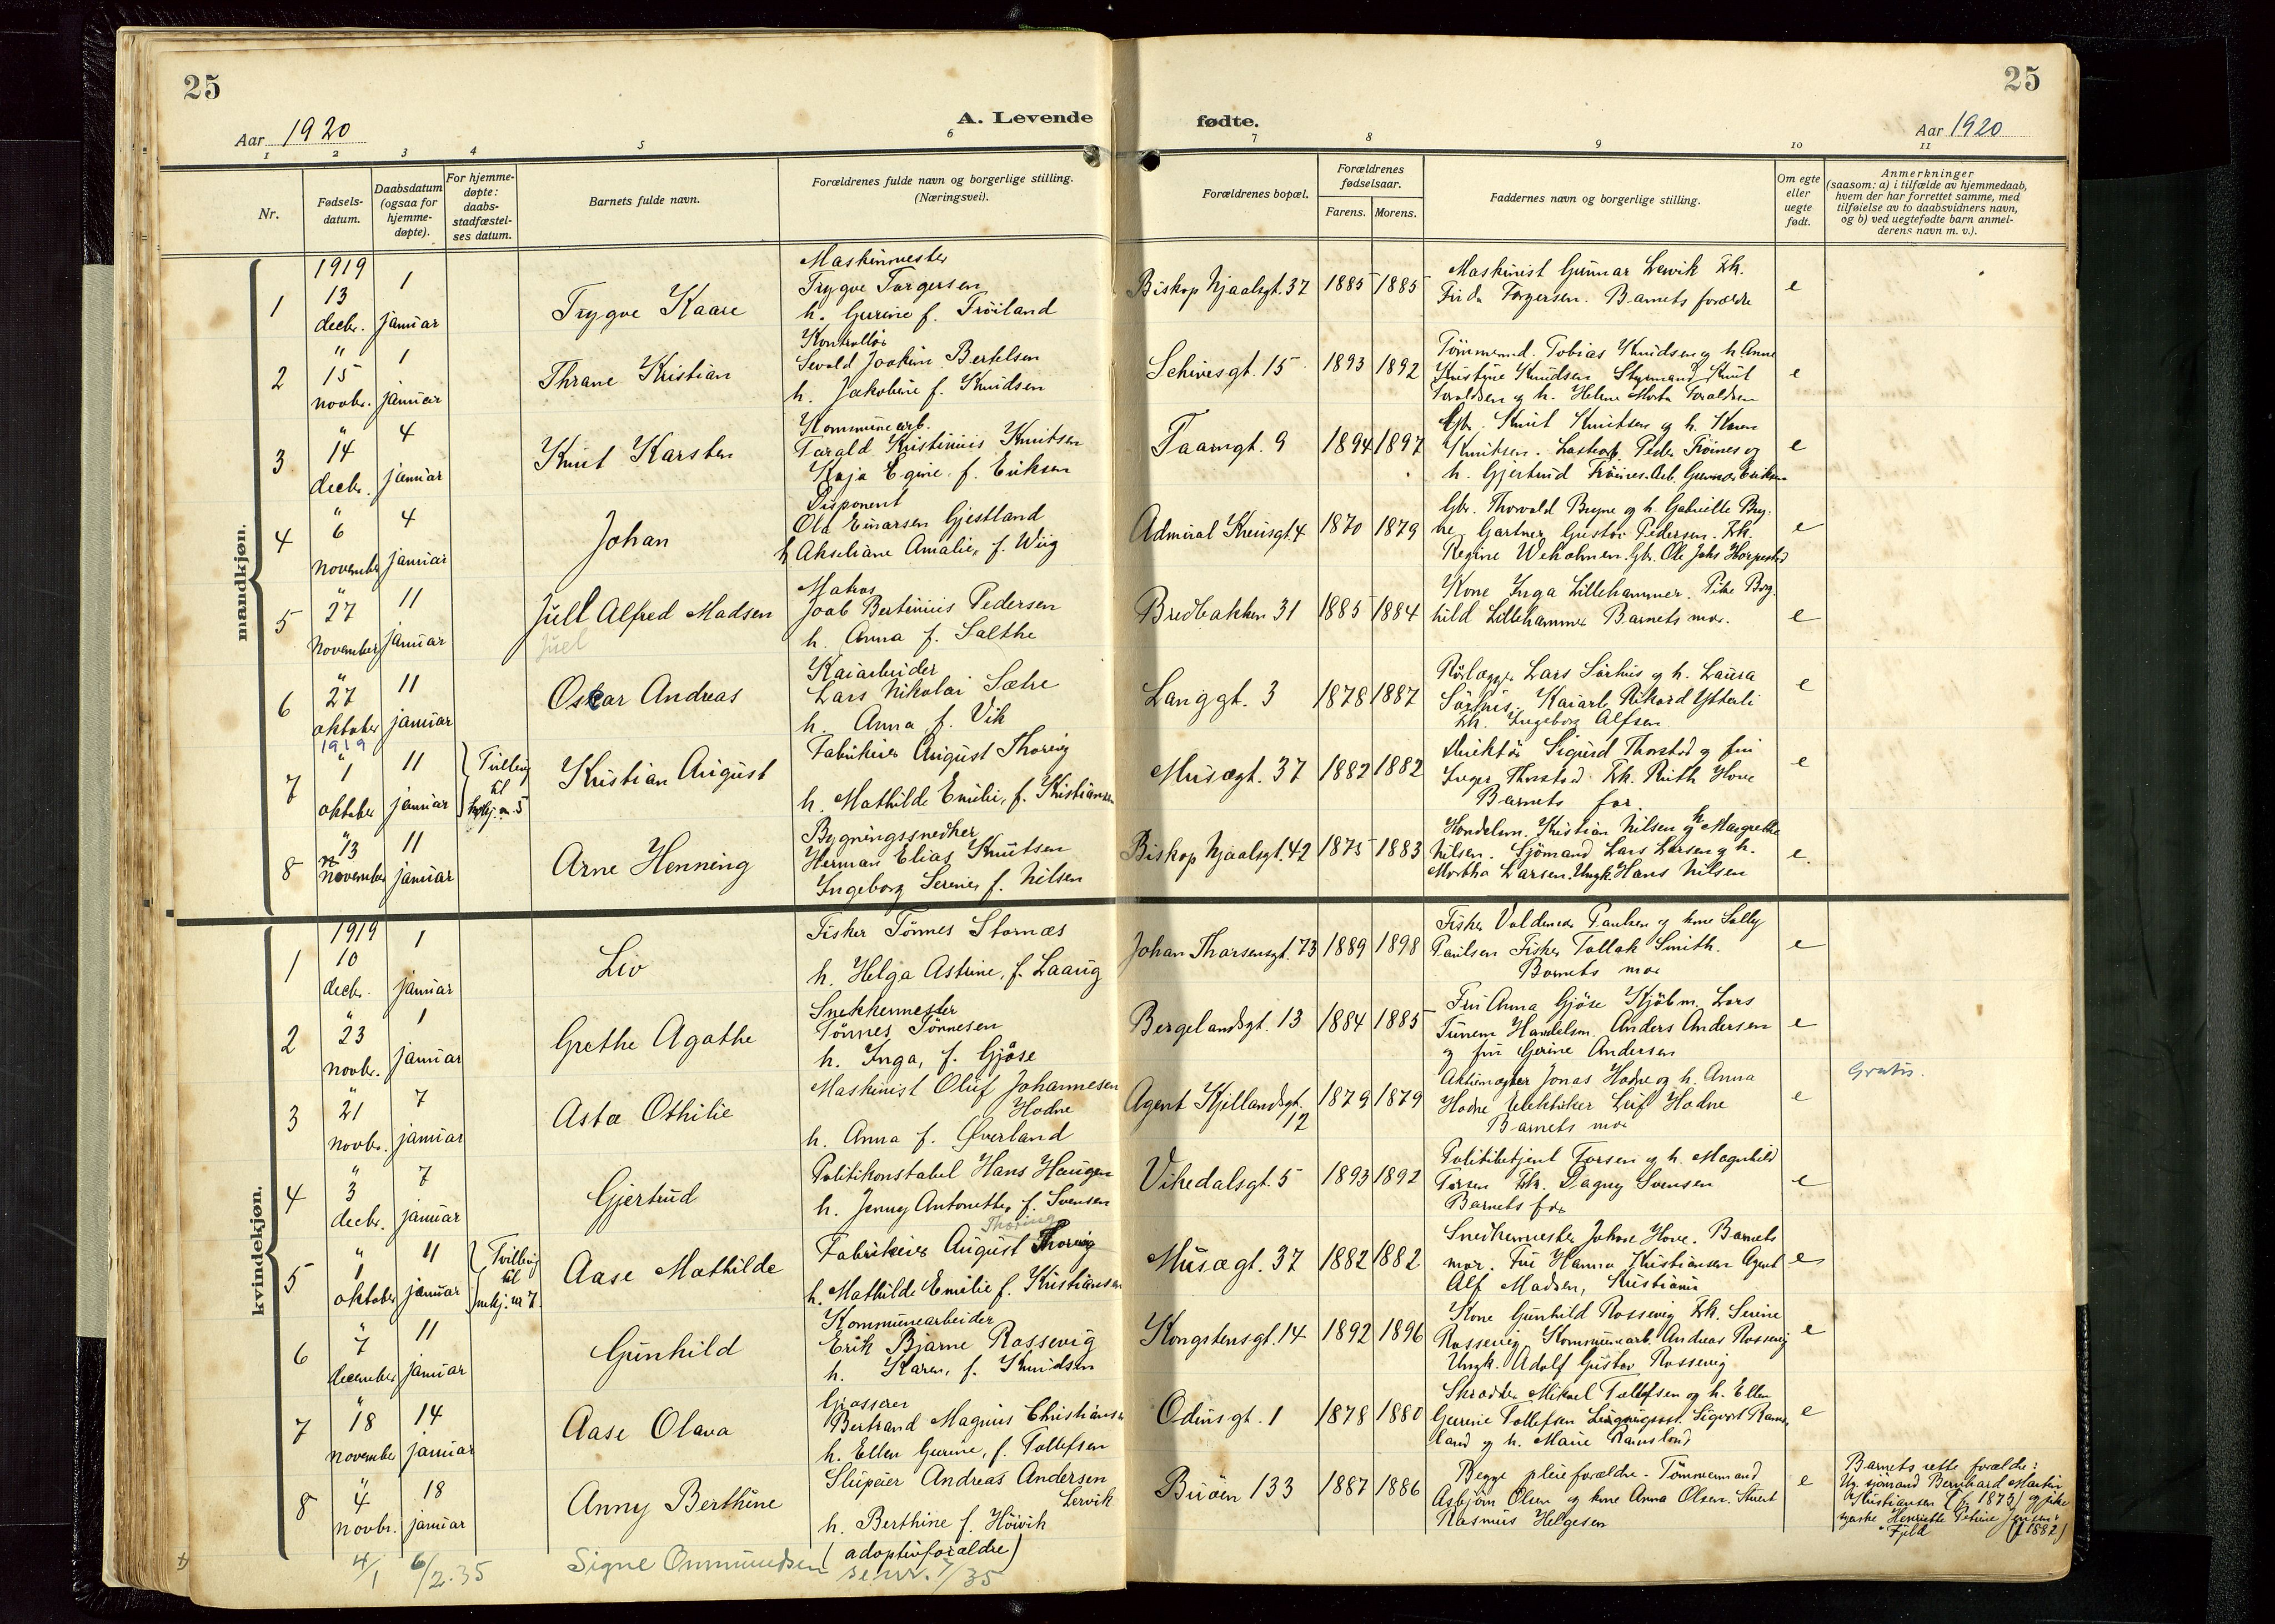 25
25
Aar 1920
A. Levende
fødte.
Aar 1920
1 2 3 4 5 6 7 8 9 10 11
Nr.
Fødsels-
datum.
Daabsdatum
(ogsaa for
hjemme-
døpte).
For hjemme-
døpte:
daabs-
stadfæstel-
ses datum.
Barnets fulde navn.
Forældrenes fulde navn og borgerlige stilling.
(Næringsvei).
Forældrenes bopæl.
Forældrenes
fødselsaar.
Farens. Morens.
Faddernes navn og borgerlige stilling.
Om egte
eller
uegte
født.
Anmerkninger
(saasom: a) i tilfælde av hjemmedaab,
hvem der har forrettet samme, med
tilføielse av to daabsvidners navn,
og b) ved uegtefødte barn anmel-
derens navn m. v.).
mandkjøn.
1
1919
13
decbr.
1
januar
Trygve Kaare
Maskinmester
Trygve Torgersen
h. Gurine f. Tröiland
Biskop Njaalsgt. 37
1885 1885
Maskinist Gunnar Lervik Frk.
Frida Torgersen. Barnets forældre
e
2
"
15
novbr.
1
januar
Thrane Kristian
Kontrollör
Sevald Joakim Bertelsen
h. Jakobine f. Knudsen
Schivesgt. 15
1893 1892
Tömmermd. Tobias Knudsen og h. Anne
Kristine Knudsen Styrmand Knut
Toraldsen og h. Helene Marta Toraldsen
e
3
"
14
decbr.
4
januar
Knut Karsten
Kommunearb.
Tarald Kristinius Knutsen
Kaja Egine f. Eriksen
Taarngt. 9
1894 1897
Gbr. Knut Knutsen og h. Karen
Knutsen. Peder Tröines og
h. Gjertrud Tröines. Arb. Gunnar Eriksen
e
4
"
6
november
4
januar
Johan
Disponent
Ola Einarsen Gjestland
h Akseliane Amalie, f. Wiig
Admiral Kruisgt. 4
1870 1879
Gbr. Thorvald Bryne og h. Gabrielle Bry-
ne Gartner Gustav Pedersen. Frk.
Regine Weholmen. Gbr. Ole Johs Horpestad
e
5
"
27
November
11
januar
Jull Alfred Madsen
Juel
Matros
Joab Bertinius Pedersen
h. Anna f. Salthe
Bredbakken 31
1885 1884
Kone Inga Lillehammer. Pike Borg-
hild Lillehammer Barnets mor.
e
6
"
27
oktober
1919
11
januar
Oskar Andreas
Kaiarbeider
Lars Nikolai Sætre
h. Anna f. Vik
Langgt. 3
1878 1887
Rörlægger Lars Sörhus og h. Laura
Sörhus. Kaiarb. Rikard Ytterli
Frk. Ingeborg Alfsen
e
7
"
1
oktober
11
januar
Tvilling
til
kvkj. nr. 5
Kristian August
Fabrikeier August Thoring
h. Mathilde Emilie, f. Kristiansen
Musægt. 37
1882 1882
Direktör Sigurd Thorstad og fru
Inger Thorstad Frk. Ruth Hove
Barnets far
e
8
"
13
november
11
januar
Arne Henning
Bygningssnedker
Herman Elias Knutsen
Ingeborg Serine, f. Nilsen
Biskop Njaalsgt. 42
1875 1883
Handelsm. Kristian Nilsen og h Margrethe
Nilsen. Sjömand Lars Larsen og h.
Martha Larsen. Ungk. Hans Nilsen
e.
kvindekjøn.
1
1919
10
decbr.
1
januar
Liv
Fisker Tönnes Stornæs
h. Helga Astrine, f. Laaug
Johan Thorsensgt. 73
1889 1898
Fisker Valdemar Paulsen og kone Sally
Paulsen Fisker Tollak Smith.
Barnets mor
e
2
"
23
novbr.
1
januar
Grethe Agathe
Snekkermester
Tönnes Tönnesen
h. Inga, f. Gjöse
Bergelandsgt. 13
1884 1885
Fru Anna Gjöse Kjöbm. Lars
Tunem Handelsm. Anders Andersen
og fru Gerine Andersen
e
3
"
21
novbr.
7
januar
Asta Othilie
Maskinist Oluf Johannesen
Hodne
h. Anna f. Øverland
Agent Kjellandsgt.
12
1879 1879
Jonas Hodne og h. Anna
Hodne Elektriker Leif Hodne
Barnets mor
e
Gratis.
4
"
3
decbr.
7
januar
Gjertrud
Politikonstabel Hans Haugen
h. Jenny Antonette, f. Svensen
Vikedalsgt. 5
1893 1892
Politibetjent Torsen og h. Magnhild
Torsen Frk. Dagny Svensen
Barnets far
e
5
"
1
oktober
11
januar
Tvilling
til
mkj. nr 7
Aase Mathilde
Thoring
Fabrikeier August Thoring
h. Mathilde Emilie f. Kristiansen
Musægt. 37
1882 1882
Snedkermester Johan Hove. Barnets
mor. Fru Hanna Kristiansen Agent
Alf Madsen, Kristiania
e
6
"
7
december
11
januar
Gunhild
Kommunearbeider
Erik Bjarne Rossevig
h. Karen, f. Knudsen
Kongstensgt. 14
1892 1896
Kone Gunhild Rossevig Frk. Serine
Rossevig Kommunearb. Andreas Rossevig
Ungk. Adolf Gustav Rossevig
e
7
"
18
november
14
januar
Aase Olava
Grosserer
Bertrand Magnus Christiansen
h. Ellen Gurine, f. Tollefsen
Odinsgt. 1
1878 1880
Skrædder Mikael Tollefsen og h. Ellen
Gurine Tollefsen Sigvart Rams-
land og h. Marie Ramsland
e
8
"
4
novbr.
18
januar
Anny Berthine
Slipeier Andreas Andersen
Lervik
h. Berthine f. Höivik
(adoptivforældre)
Buöen 133
1887 1886
Begge pleieforældre. Tömmermand
Asbjörn Olsen og kone Anna Olsen. Stuert
Rasmus Helgesen
e
Barnets rette forældre:
Ug. sjömand Bernhard Martin
Kristiansen (f. 1873) og pike
Henriette Petrine Jensen
Fjeld (f 1882)
4/1 6/2.35
Signe Ommundsen
7/35